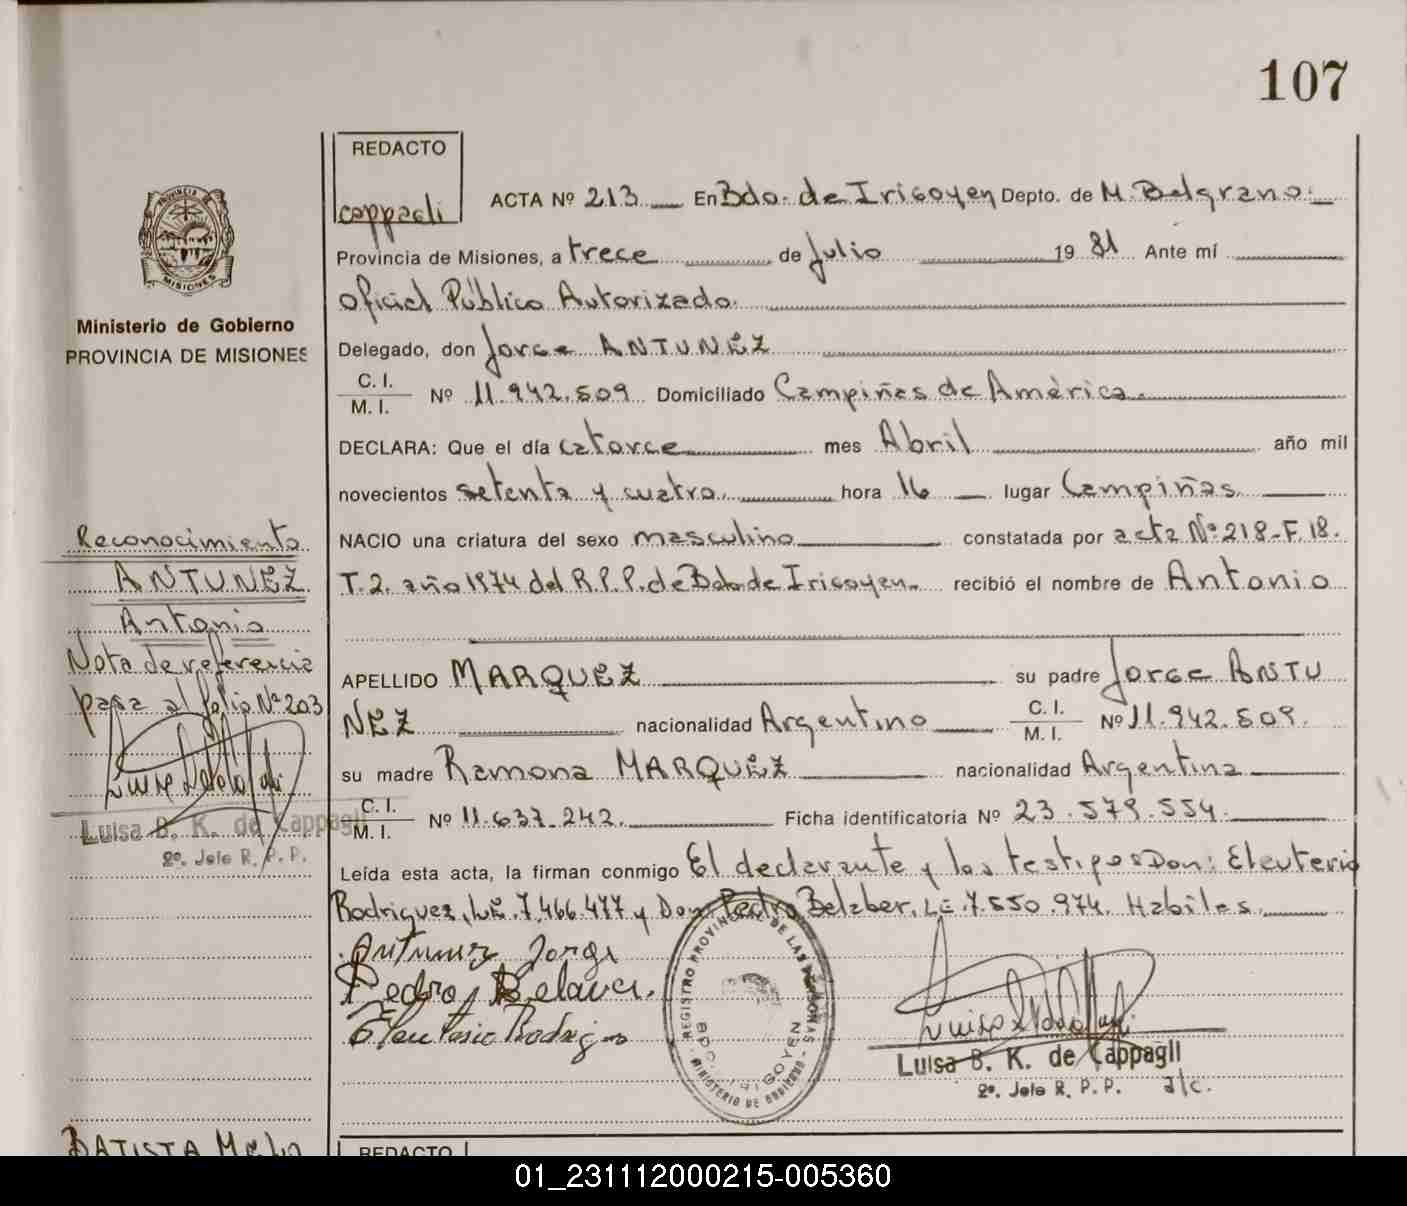 107
REDACTO
cappagli
ACTA Nº 213 En Bdo. de Irigoyen Depto. de M. Belgrano.
Provincia de Misiones, a trece de Julio 19 81 Ante mí
Oficial Público Autorizado.
Delegado, don Jorge ANTUNEZ
C. I.
M. I. Nº 11.942.509 Domiciliado Campiñas de América.
DECLARA: Que el día catorce mes Abril año mil
novecientos setenta y cuatro. hora 16 lugar Campiñas
NACIO una criatura del sexo masculino constatada por acta Nº 218-F.18.
T.2. año 1974 del R.P.P. de Bdo de Irigoyen. recibió el nombre de Antonio
APELLIDO MARQUEZ su padre Jorge ANTU
NEZ nacionalidad Argentino C. I.
M. I. Nº 11.942.509.
su madre Ramona MARQUEZ nacionalidad Argentina
C. I.
M. I. Nº 11.637.242. Ficha identificatoria Nº 23.579.554.
Leída esta acta, la firman conmigo El declarante y los testigos Don: Eleuterio
Rodriguez, LE. 7.466.477 y Don Pedro Belaber, LE 7.550.974. Habiles.
Antunez Jorge
Pedro Belaver.
Eleuterio Rodrigo
REGISTRO PROVINCIAL DE LAS PERSONAS
BDO. IRIGOYEN
MINISTERIO DE GOBIERNO
Luisa B. K. de Cappagli
2º. Jefe R. P. P. a/c.
PROVINCIA DE
MISIONES
Ministerio de Gobierno
PROVINCIA DE MISIONES
Reconocimiento
ANTUNEZ
Antonio
Nota de referencia
pasa al folio Nº 203
Luisa B. K. de Cappagli
2º. Jefe R. P. P.
BATISTA Melo
REDACTO
01_231112000215-005360